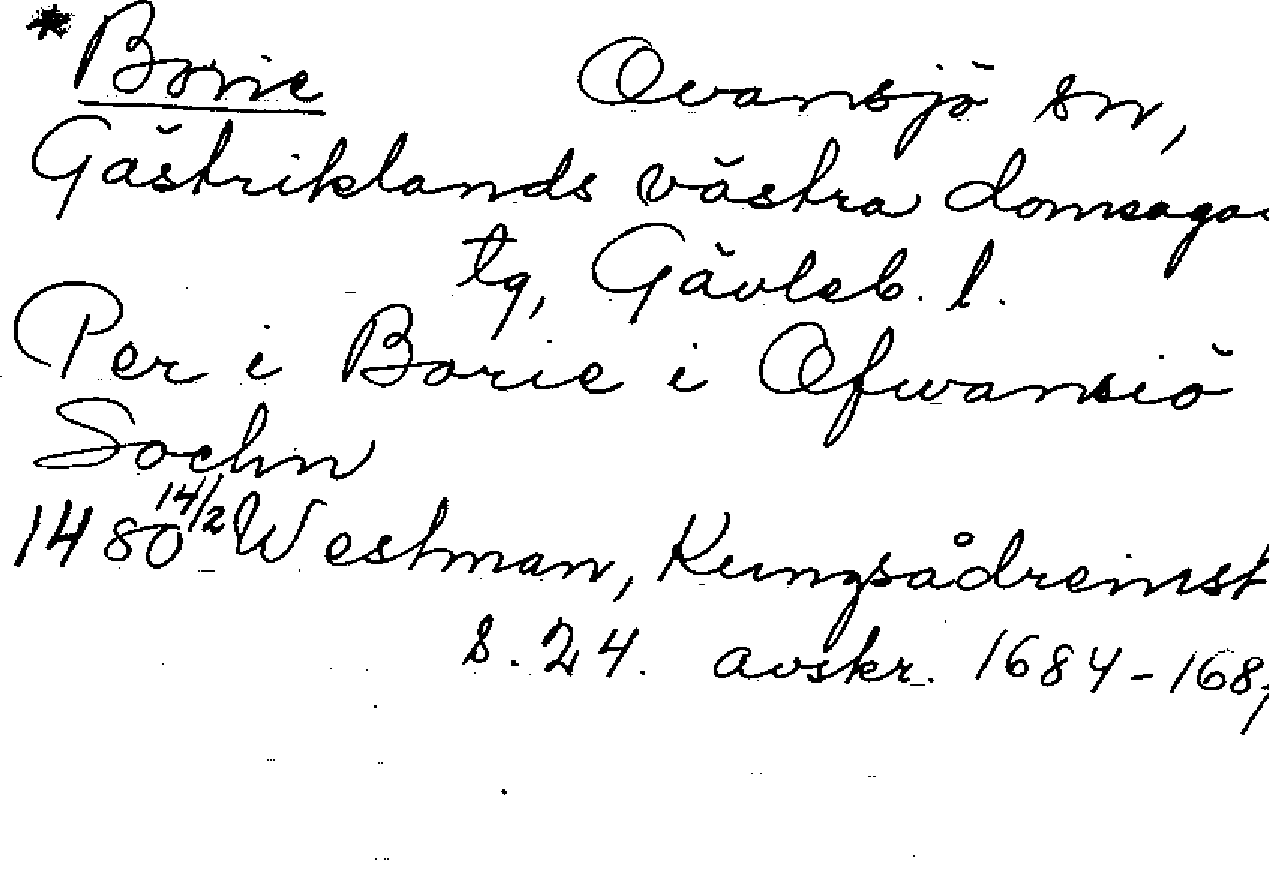 * Borie Ovansjö sn,
Gästriklands västra domsaga
tg, Gävleb. l.
Per i Borie i Ofwansiö
Sochn
1480 14/2 Westman, Kungsådreinst
s. 24. avskr. 1684-168